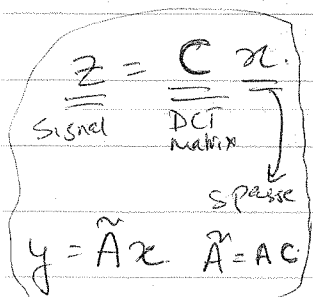 z = C x.
Signal DCT
matrix
sparse
y = Ãx Ã = AC